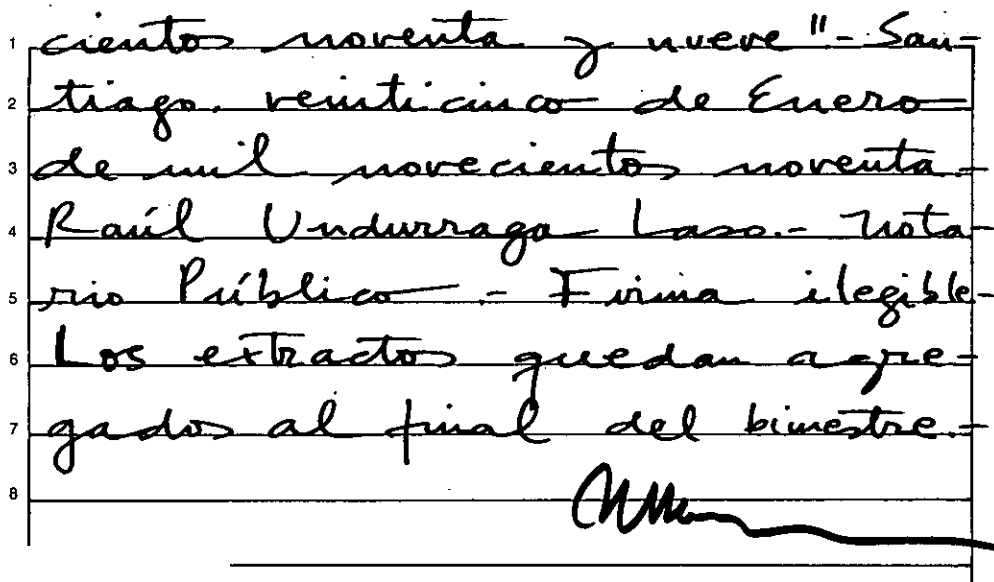 1 cientos noventa y nueve"-San-
2 tiago, veinticinco de Enero
3 de mil novecientos noventa-
4 Raúl Undurraga Laso.- Nota-
5 rio Público.- Firma ilegible-
6 Los extractos quedan agre-
7 gados al final del bimestre.-
8